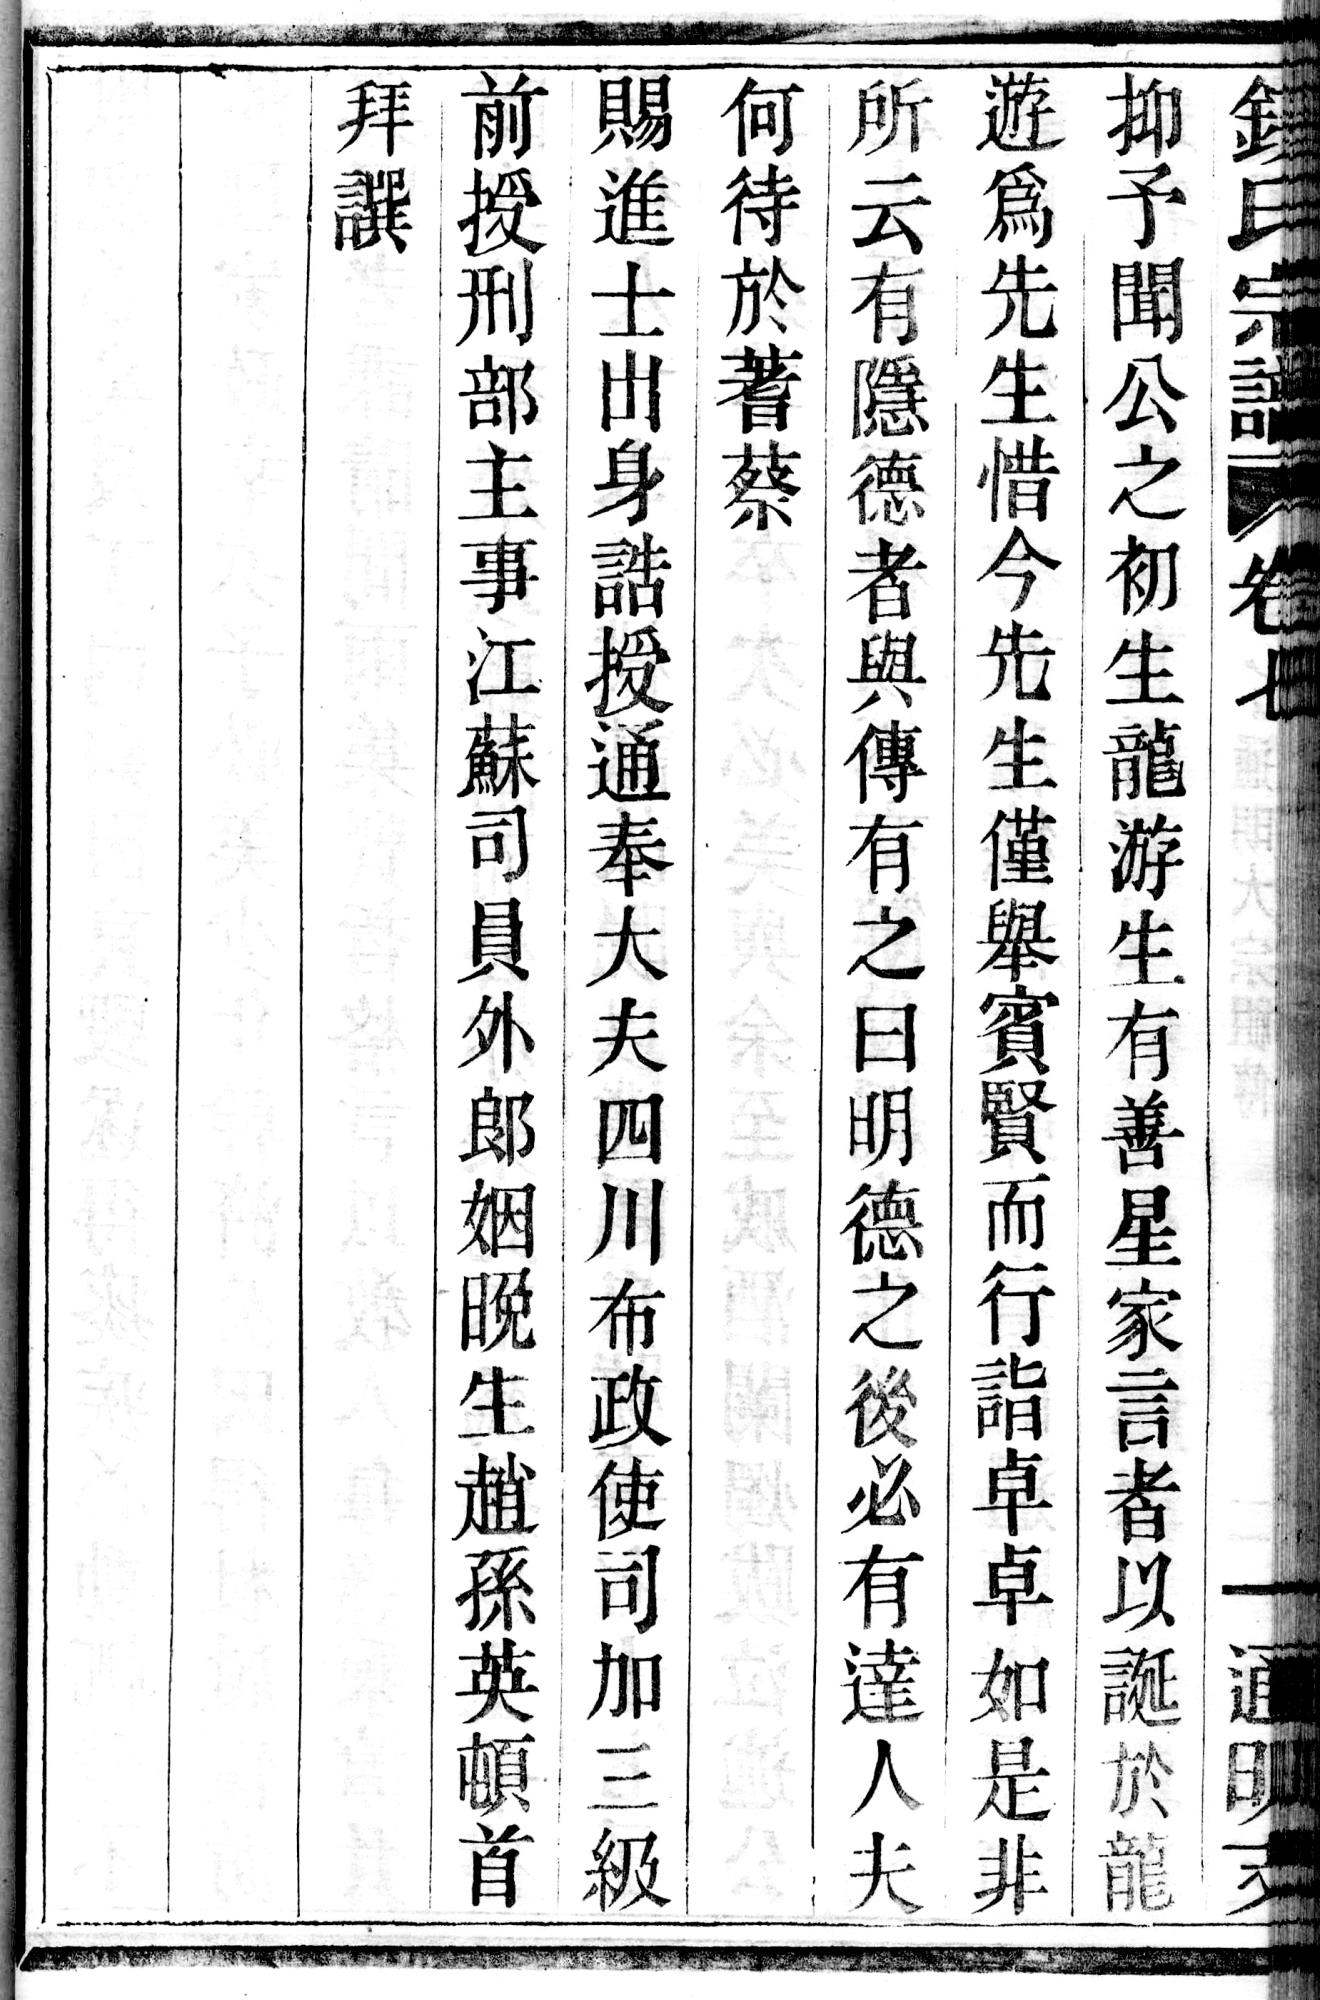 氏宗譜 卷七 通明
抑予聞公之初生龍游生有善星家言者以誕於龍
遊爲先生惜今先生僅舉賓賢而行詣卓卓如是非
所云有隱德者與傳有之曰明德之後必有達人夫
何待於蓍蔡
賜進士出身誥授通奉大夫四川布政使司加三級
前授刑部主事江蘇司員外郎姻晚生趙孫英頓首
拜譔